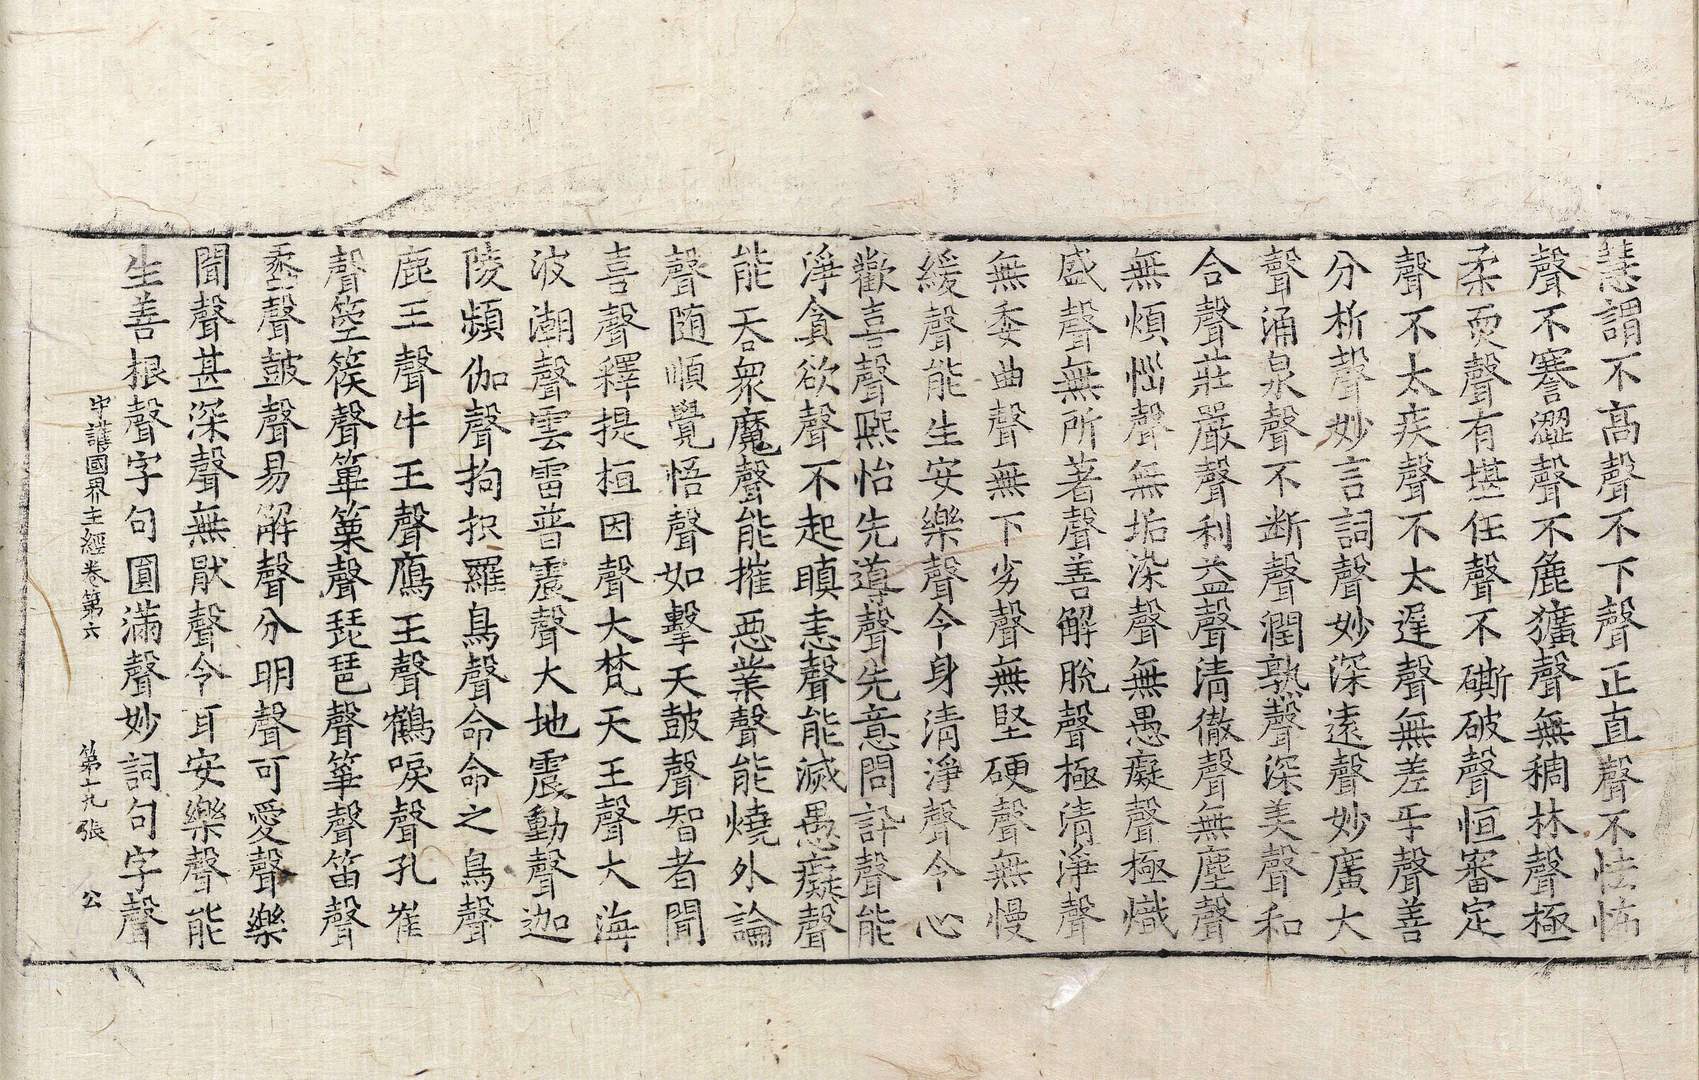 慧謂不高聲不下聲正直聲不怯怖
聲不謇澀聲不麁獷聲無稠林聲極
柔耎聲有堪任聲不㾷破聲恒審定
聲不太疾聲不太遲聲無差互聲善
分析聲妙言詞聲妙深遠聲妙廣大
聲涌泉聲不断聲潤熟聲深美聲和
合聲莊嚴聲利益聲清徹聲無塵聲
無煩惱聲無垢染聲無愚癡聲極熾
盛聲無所著聲善解脫聲極清淨聲
無委曲聲無下劣聲無堅硬聲無慢
緩聲能生安樂聲令身清淨聲令心
歡喜聲熙怡先導聲先意問訊聲能
淨貪欲聲不起瞋恚聲能滅愚癡聲
能吞衆魔聲能摧惡業聲能燒外論
聲随順覺悟聲如擊天鼓聲智者聞
喜聲釋提桓因聲大梵天王聲大海
波潮聲雲雷普震聲大地震動聲迦
陵頻伽聲拘抧羅鳥聲命命之鳥聲
鹿王聲牛王聲鴈王聲鶴唳聲孔雀
聲箜篌聲篳篥聲琵琶聲箏聲笛聲
蠡聲鼓聲易解聲分明聲可愛聲樂
聞聲甚深聲無猒聲令耳安樂聲能
生善根聲字句圓滿聲妙詞句字聲
守護國界主經卷第六 第十九張 公